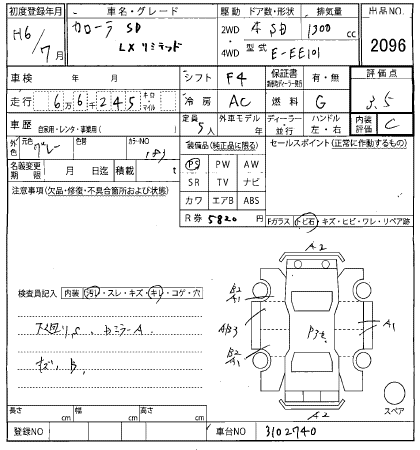 初度登録年月 車名・グレード 駆動 ドア数・形状 排気量 出品NO
H6/7月 カローラ SD 2WD 4 SD 1300 cc 2096
LX リミテッド 4WD 型式 E-EE101
車検 年 月 シフト F4 保証書 有・無 評価点
走行 6万6千245 キロ・マイル 冷房 AC 燃料 G 3.5
車歴 自家用・レンタ・事業用( ) 定員 5人 外車モデル 年 ディーラー・並行 ハンドル 左・右 内装評価 C
外色 元色 グレー 色替 カラーNO 183 装備品(純正品に限る) セールスポイント(正常に作動するもの)
名義変更期限 月 日迄 積載 t PS PW AW
注意事項(欠品・修復・不具合箇所および状態) SR TV ナビ
カワ エアB ABS
R券 5820 Fガラス トビ石・キズ・ヒビ・ワレ・リペア跡
A2
検査員記入 内装 汚レ・スレ・キズ・キレ・コゲ・穴
B2
A1
A1
B2
A1
キズ、B
A2
スペア
長さ cm 幅 cm 高さ cm
登録NO 車台NO 3102740